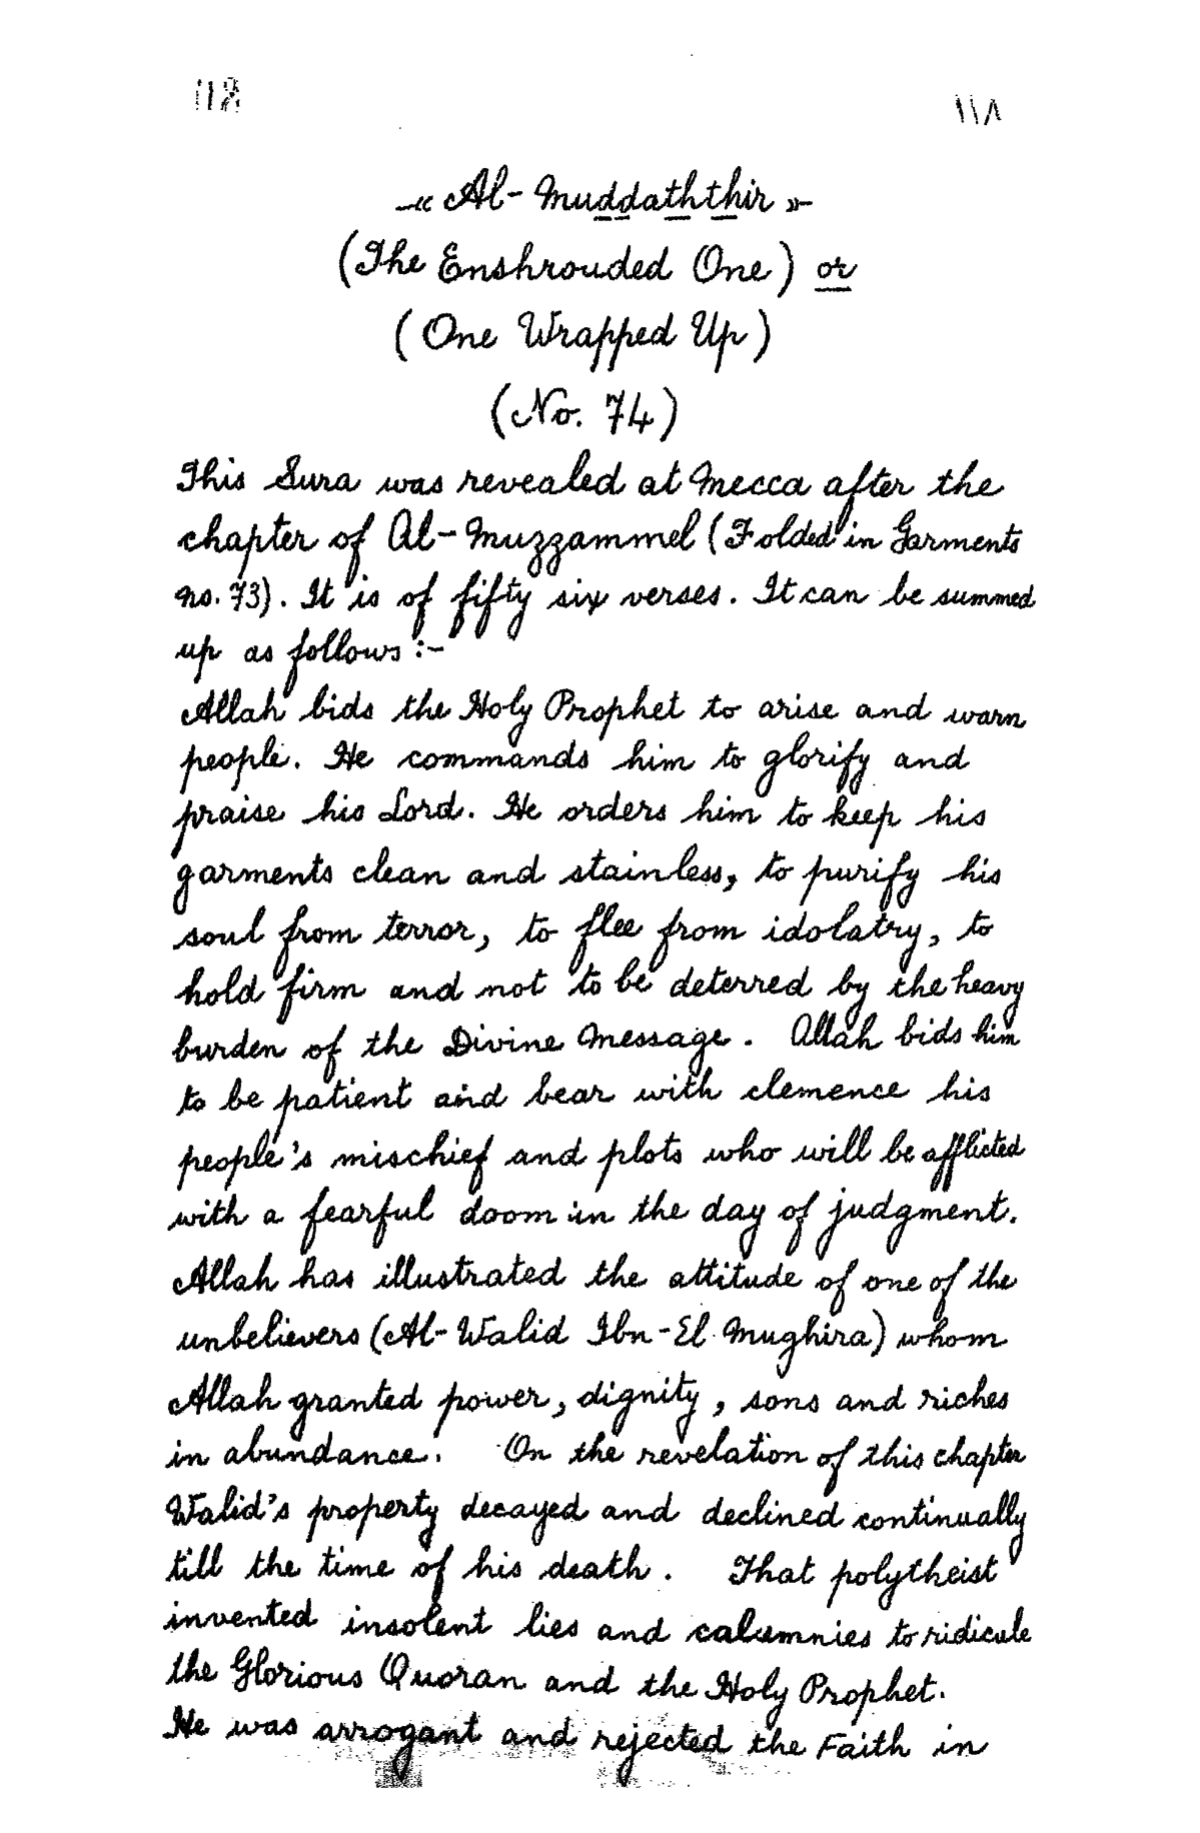 118 ١١٨
-« Al-Muddaththir »-
(The Enshrouded One) or
(One Wrapped Up)
(No. 74)
This Sura was revealed at Mecca after the
chapter of Al-Muzzammel (Folded in Garments
no. 73). It is of fifty six verses. It can be summed
up as follows :-
Allah bids the Holy Prophet to arise and warn
people. He commands him to glorify and
praise his Lord. He orders him to keep his
garments clean and stainless, to purify his
soul from terror, to flee from idolatry, to
hold firm and not to be deterred by the heavy
burden of the Divine Message. Allah bids him
to be patient and bear with clemence his
people's mischief and plots who will be afflicted
with a fearful doom in the day of judgment.
Allah has illustrated the attitude of one of the
unbelievers (Al-Walid Ibn-El Mughira) whom
Allah granted power, dignity, sons and riches
in abundance. On the revelation of this chapter
Walid's property decayed and declined continually
till the time of his death. That polytheist
invented insolent lies and calumnies to ridicule
the Glorious Quoran and the Holy Prophet.
He was arrogant and rejected the Faith in